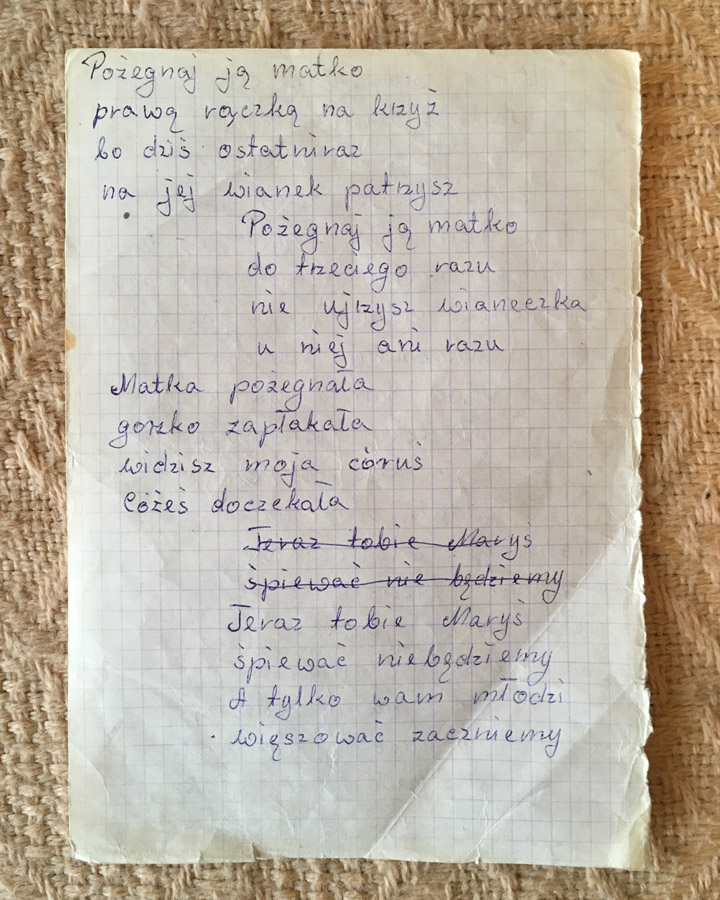 Pożegnaj ją matko
prawą rączką na krzyż
bo dziś ostatniraz
na jej wianek patrzysz
Pożegnaj ją matko
do trzeciego razu
nie ujrzysz wianeczka
u niej ani razu
Matka pożegnała
gorzko zapłakała
widzisz moja córuś
Cóżeś doczekała
Teraz tobie Maryś
śpiewać nie będziemy
Teraz tobie Maryś
śpiewać niebędziemy
A tylko wam młodzi
więszować zaczniemy